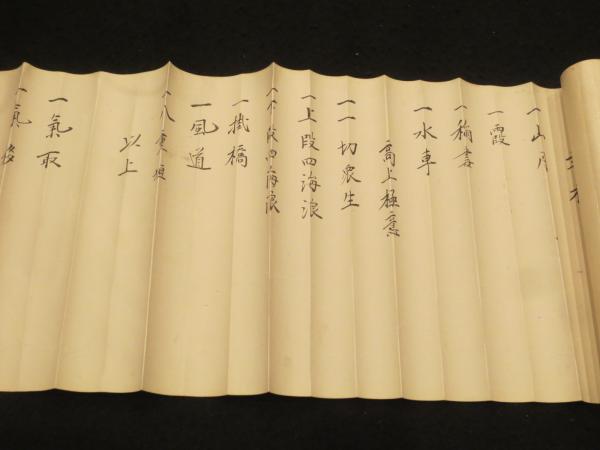 一山月
一霞
一稲妻
一水車
高上極意
一一切衆生
一上段四海浪
一下段四海浪
一掛橋
一風道
一八重垣
以上
一氣取
一氣